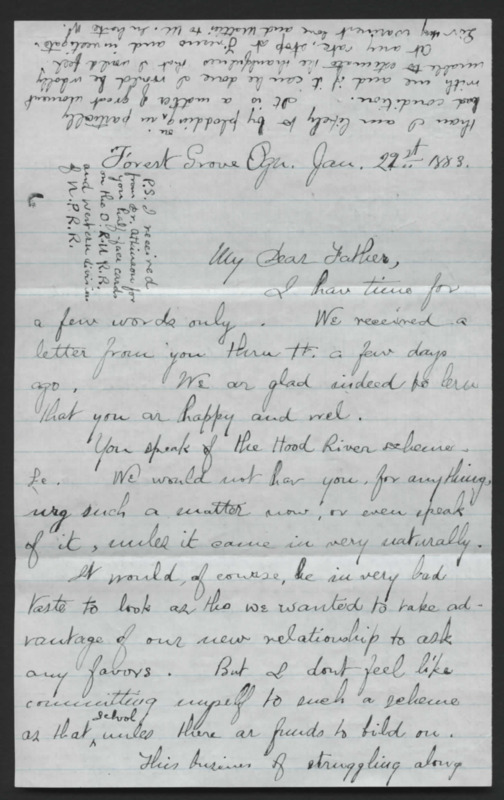 Forest Grove Ogn. Jan. 22nd 1883.
My Dear Father,
I hav time for
a few words only. We received a
letter from you thru H. a few days
ago. We ar glad indeed to lern
that you ar happy and wel.
You speak of the Hood River scheme.
&c. We would not hav you, for anything,
urg such a matter now, or even speak
of it, unles it came in very naturally.
It would, of course, be in very bad
taste to look as tho we wanted to take ad-
vantage of our new relationship to ask
any favors. But I dont feel like
committing myself to such a scheme
as that school, unles there ar funds to bild on.
This busines of struggling along
P.S. I received
from Dr. Atkinson for
you half-fare cards
on the O.R.& N. R.R.
and western division
of N.P.R.R.
than I am likely to by plodding on in partially
bad condition. It is a matter of great moment
with me and if it can be done I would be wholly
unable to estimate the thankfulnes that I would feel.
At any rate, stop at Fresno and investigate.
Giv my warmest love and to M. In haste W.